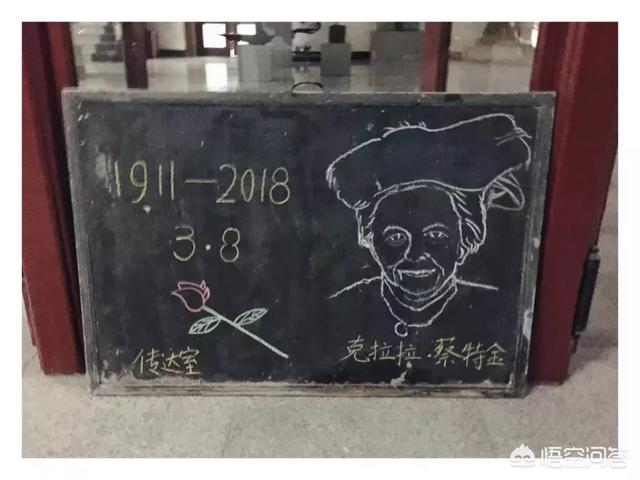 1911-2018
3·8
传达室
克拉拉·蔡特金
悟空问答